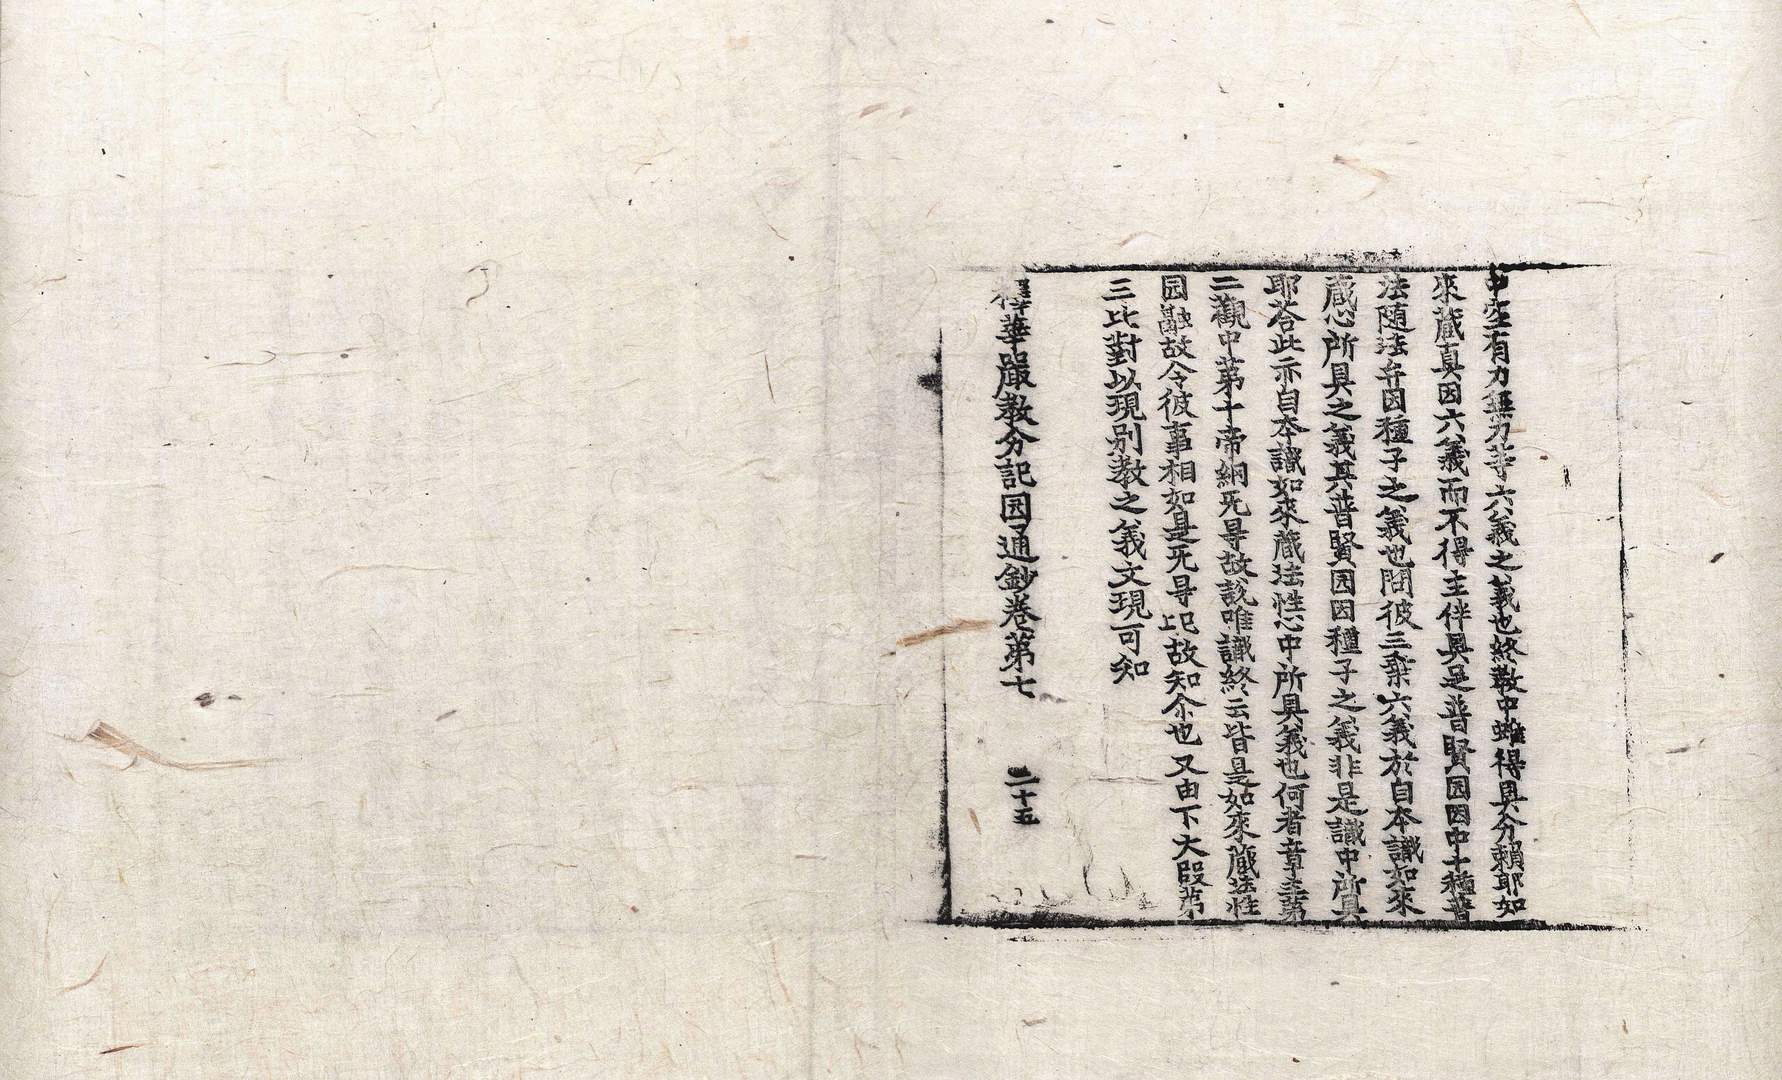 中空有力無力等六義之義也終教中雖得具分賴耶如
來蔵真因六義而不得主伴具足普賢因因中十種普
法随法弁因種子之義也問彼三乗六義於自本識如來
蔵心所具之義其普賢因因種子之義非是識中所具
耶荅此示自本識如來蔵法性心中所具義也何者章主第
二觀中第十帝網无导故説唯識終云皆是如來蔵法性
园融故令彼事相如是无导 故知尒也又由下大段第
三比對以現别教之義文現可知
釋華嚴教分記园通鈔卷第七 二十五